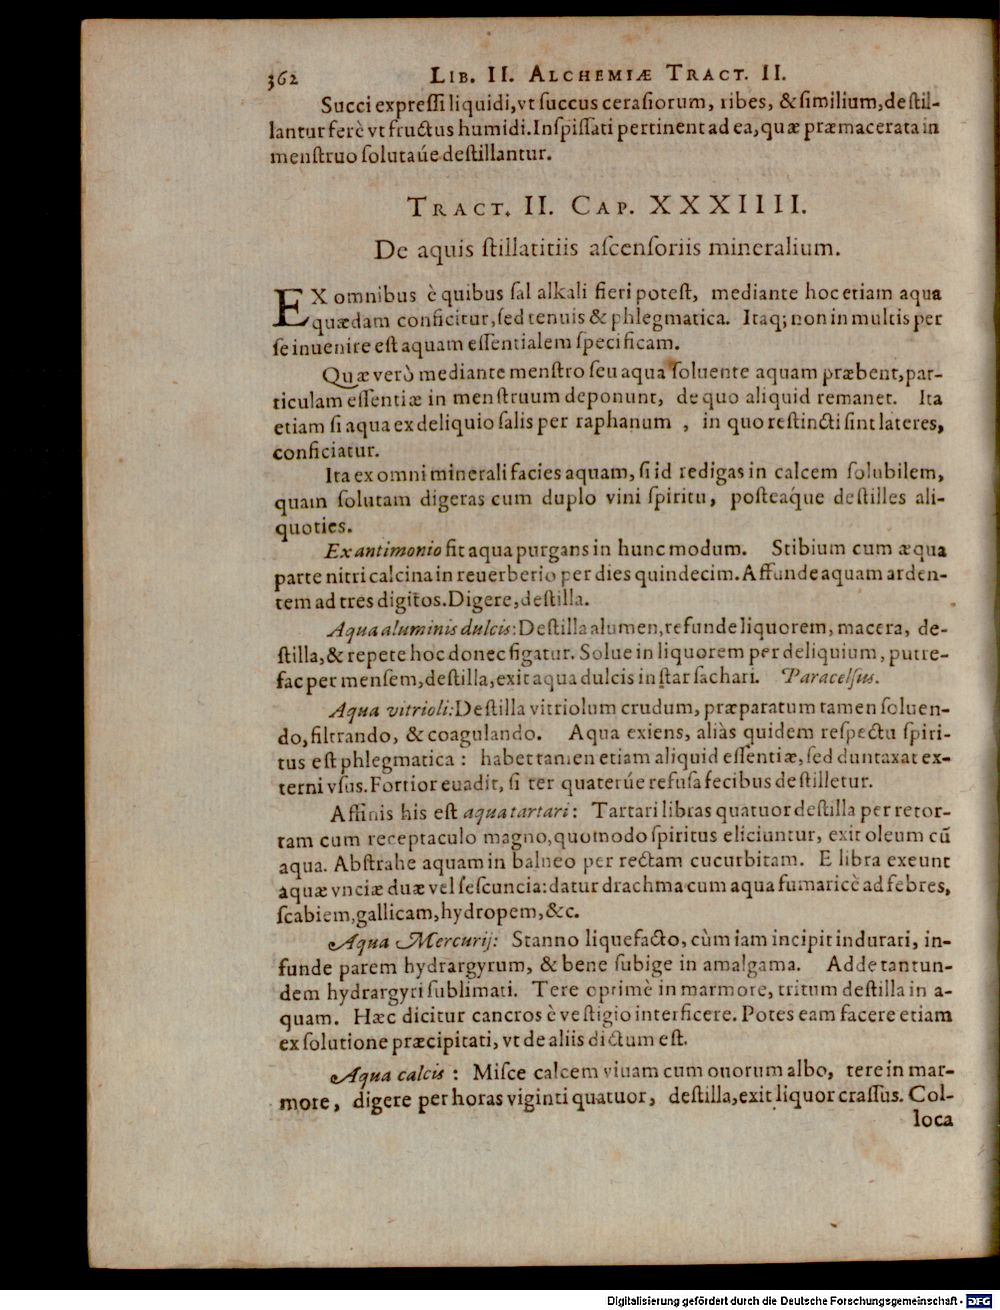 362 LIB. II. ALCHEMIÆ TRACT. II.
Succi expreſſi liquidi,vt ſuccus ceraſiorum, ribes, & ſimilium,deſtil-
lantur ferè vt fructus humidi.Inſpiſſati pertinent ad ea,quæ præmacerata in
menſtruo ſolutaúe deſtillantur.
TRACT. II. CAP. XXXIIII.
De aquis ſtillatitiis aſcenſoriis mineralium.
EX omnibus è quibus ſal alkali fieri poteſt, mediante hoc etiam aqua
quædam conficitur,ſed tenuis & phlegmatica. Itaq; non in multis per
ſe inuenire eſt aquam eſſentialem ſpecificam.
Quæ verò mediante menſtro ſeu aqua ſoluente aquam præbent,par-
ticulam eſſentiæ in menſtruum deponunt, de quo aliquid remanet. Ita
etiam ſi aqua ex deliquio ſalis per raphanum , in quo reſtincti ſint lateres,
conficiatur.
Ita ex omni minerali facies aquam, ſi id redigas in calcem ſolubilem,
quam ſolutam digeras cum duplo vini ſpiritu, poſteaq́ue deſtilles ali-
quoties.
Ex antimonio fit aqua purgans in hunc modum. Stibium cum æqua
parte nitri calcina in reuerberio per dies quindecim. Affunde aquam arden-
tem ad tres digitos.Digere,deſtilla.
Aqua aluminis dulcis:Deſtilla alumen,refunde liquorem, macera, de-
ſtilla,& repete hoc donec figatur. Solue in liquorem per deliquium, putre-
fac per menſem,deſtilla,exit aqua dulcis inſtar ſachari. Paracelſus.
Aqua vitrioli:Deſtilla vitriolum crudum, præparatum tamen ſoluen-
do,filtrando, & coagulando. Aqua exiens, aliàs quidem reſpectu ſpiri-
tus eſt phlegmatica : habet tamen etiam aliquid eſſentiæ, ſed duntaxat ex-
terni vſus.Fortior euadit, ſi ter quaterúe refuſa fecibus deſtilletur.
Affinis his eſt aqua tartari: Tartari libras quatuor deſtilla per retor-
tam cum receptaculo magno,quomodo ſpiritus eliciuntur, exit oleum cū
aqua. Abſtrahe aquam in balneo per rectam cucurbitam. E libra exeunt
aquæ vnciæ duæ vel ſeſcuncia:datur drachma cum aqua fumariæ ad febres,
ſcabiem,gallicam,hydropem,&c.
Aqua Mercurij: Stanno liquefacto, cùm iam incipit indurari, in-
funde parem hydrargyrum, & bene ſubige in amalgama. Adde tantun-
dem hydrargyri ſublimati. Tere optimè in marmore, tritum deſtilla in a-
quam. Hæc dicitur cancros è veſtigio interficere. Potes eam facere etiam
ex ſolutione præcipitati, vt de aliis dictum eſt.
Aqua calcis : Miſce calcem viuam cum ouorum albo, tere in mar-
more, digere per horas viginti quatuor, deſtilla,exit liquor craſſus. Col-
loca
Digitalisierung gefördert durch die Deutsche Forschungsgemeinschaft - DFG